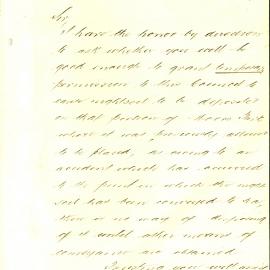 Sir,
I have the honor by direction
to ask whether you will be
good enough to grant temporary
permission to this Council to
cause nightsoil to be deposited
on that portion of
where it was previously allowed
to be placed, as owing to an
accident which has occurred
to the punt in which the night
soil has been conveyed to sea,
there is no way of disposing
of it until other means of
conveyance are obtained
Trusting you will